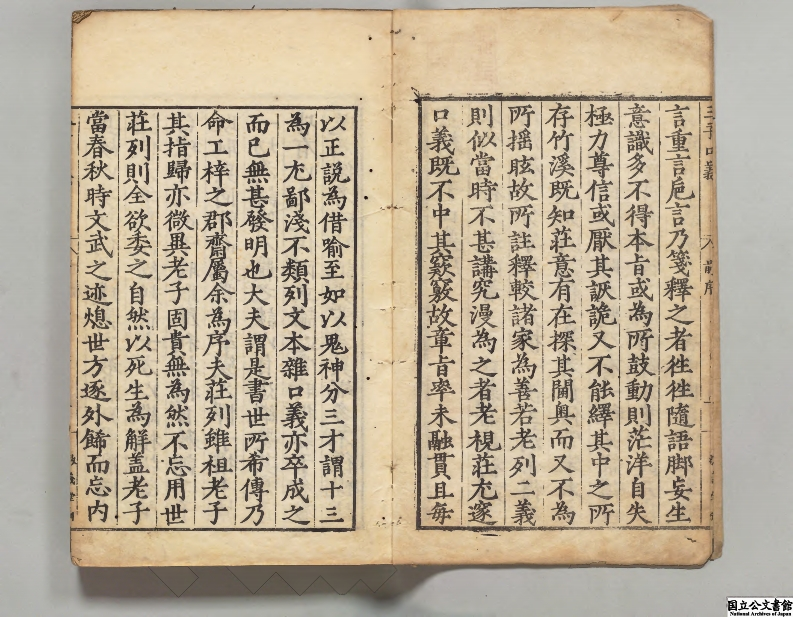 言重言巵言乃箋釋之者徃徃隨語脚妄生
意識多不得本㫖或為所鼓動則茫洋自失
極力尊信或厭其詼詭又不能繹其中之所
存竹溪既知莊意有在探其閫奥而又不為
所摇眩故所註釋較諸家為善若老列二義
則似當時不甚講究漫為之者老視莊尤邃
口義既不中其窾竅故章㫖率未融貫且每
以正説為借喻至如以鬼神分三才謂十三
為一尤鄙淺不類列文本雜口義亦卒成之
而已無甚發明也大夫謂是書世所希傳乃
命工梓之郡齋屬余為序夫莊列雖祖老子
其指歸亦微異老子固貴無為然不忘用世
莊列則全欲委之自然以死生為解盖老子
當春秋時文武之迹熄世方逐外餙而忘内
三子口義
國立公文書館
National Archives of Japan